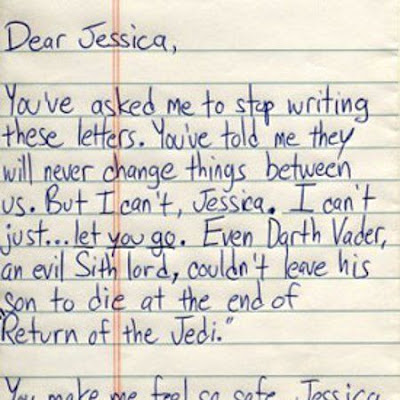 Dear Jessica,
You've asked me to stop writing
these letters. You've told me they
will never change things between
us. But I can't, Jessica. I can't
just... let you go. Even Darth Vader,
an evil Sith lord, couldn't leave his
son to die at the end of
"Return of the Jedi."
You make me feel so safe, Jessica